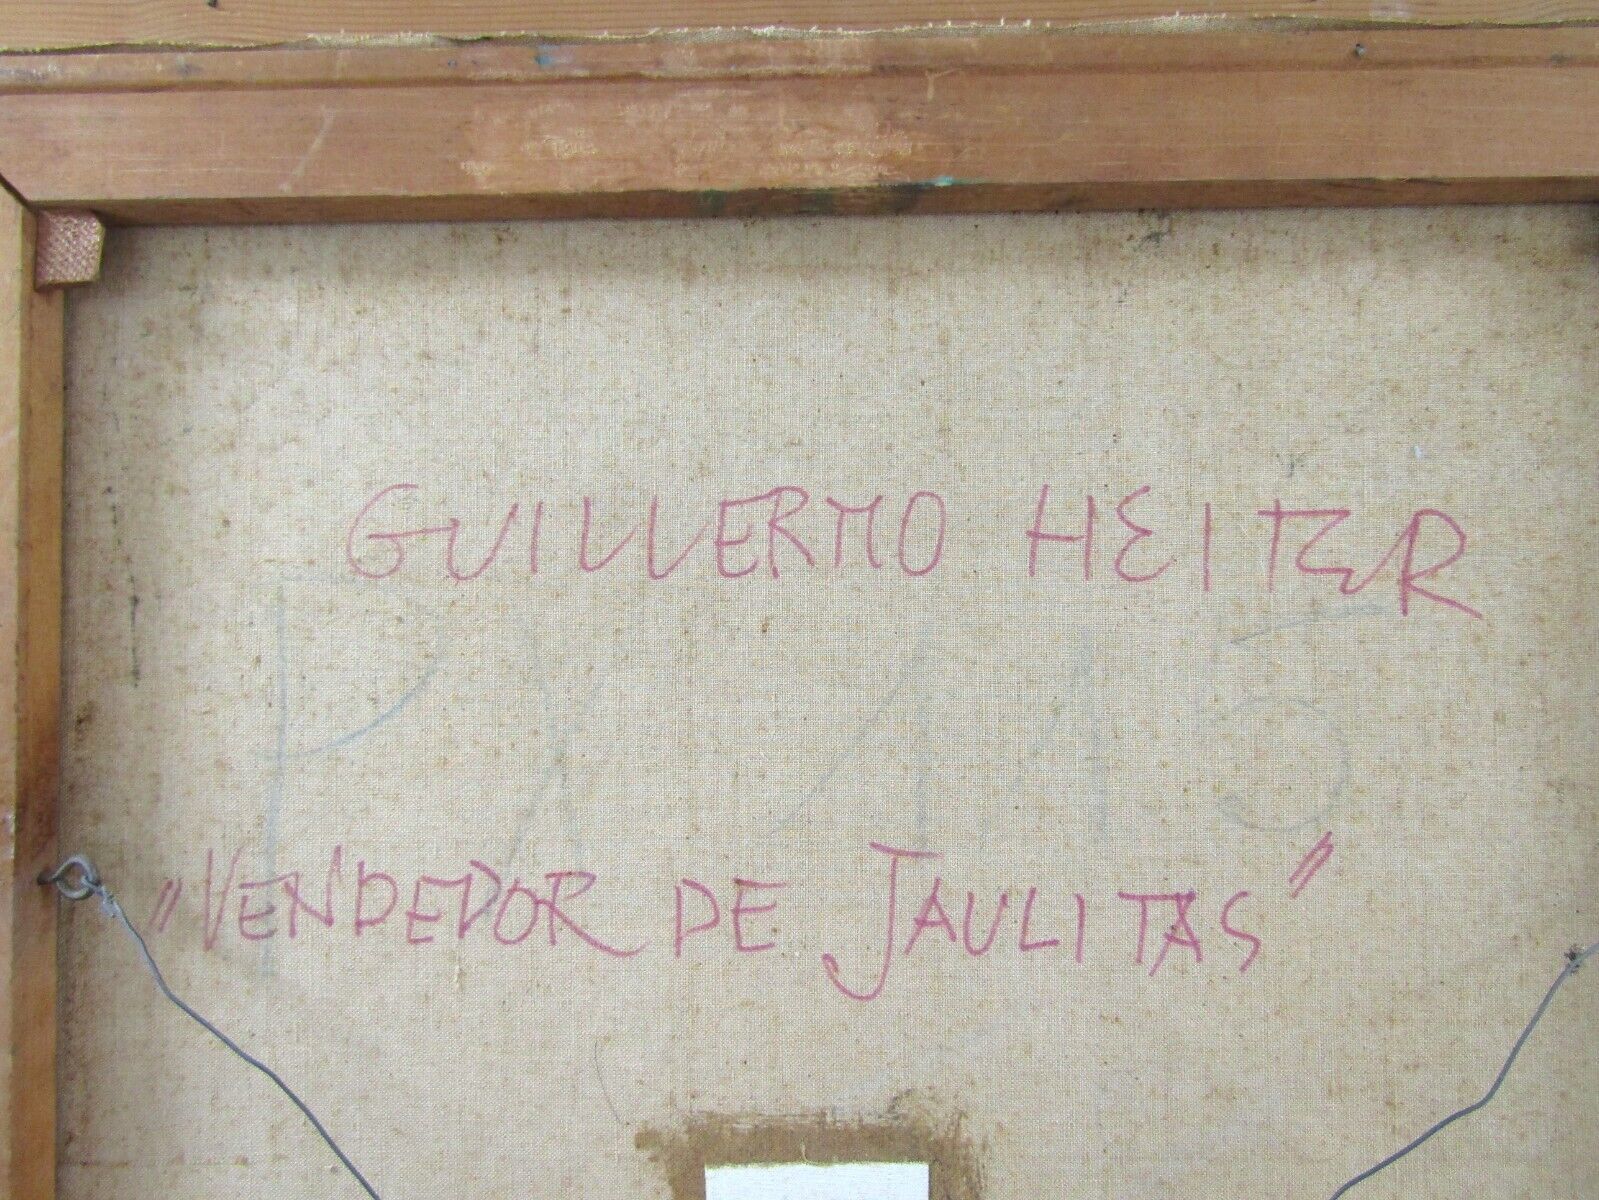 GUILLERMO HEITER
"VENDEDOR DE JAULITAS"